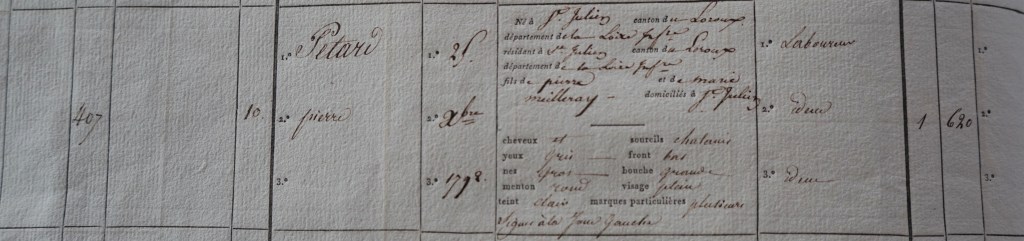 407
10.
1.° Pétard
2.° pierre
3.°
1.° 25.
2.° Xbre
3.° 1792.
Né à St Julien canton du Loroux
département de la Loire Infre
résident à St Julien canton du Loroux
département de la Loire Infre
fils de pierre et de marie
meilleray domiciliés à St Julien
cheveux et sourcils chatains
yeux gris front bas
nez gros bouche grande
menton rond visage plein
teint clair marques particulières plusieurs
signes à la Joue Gauche
1.° Laboureur
2.° idem
3.° idem
1
620
1.°
2.°
3.°